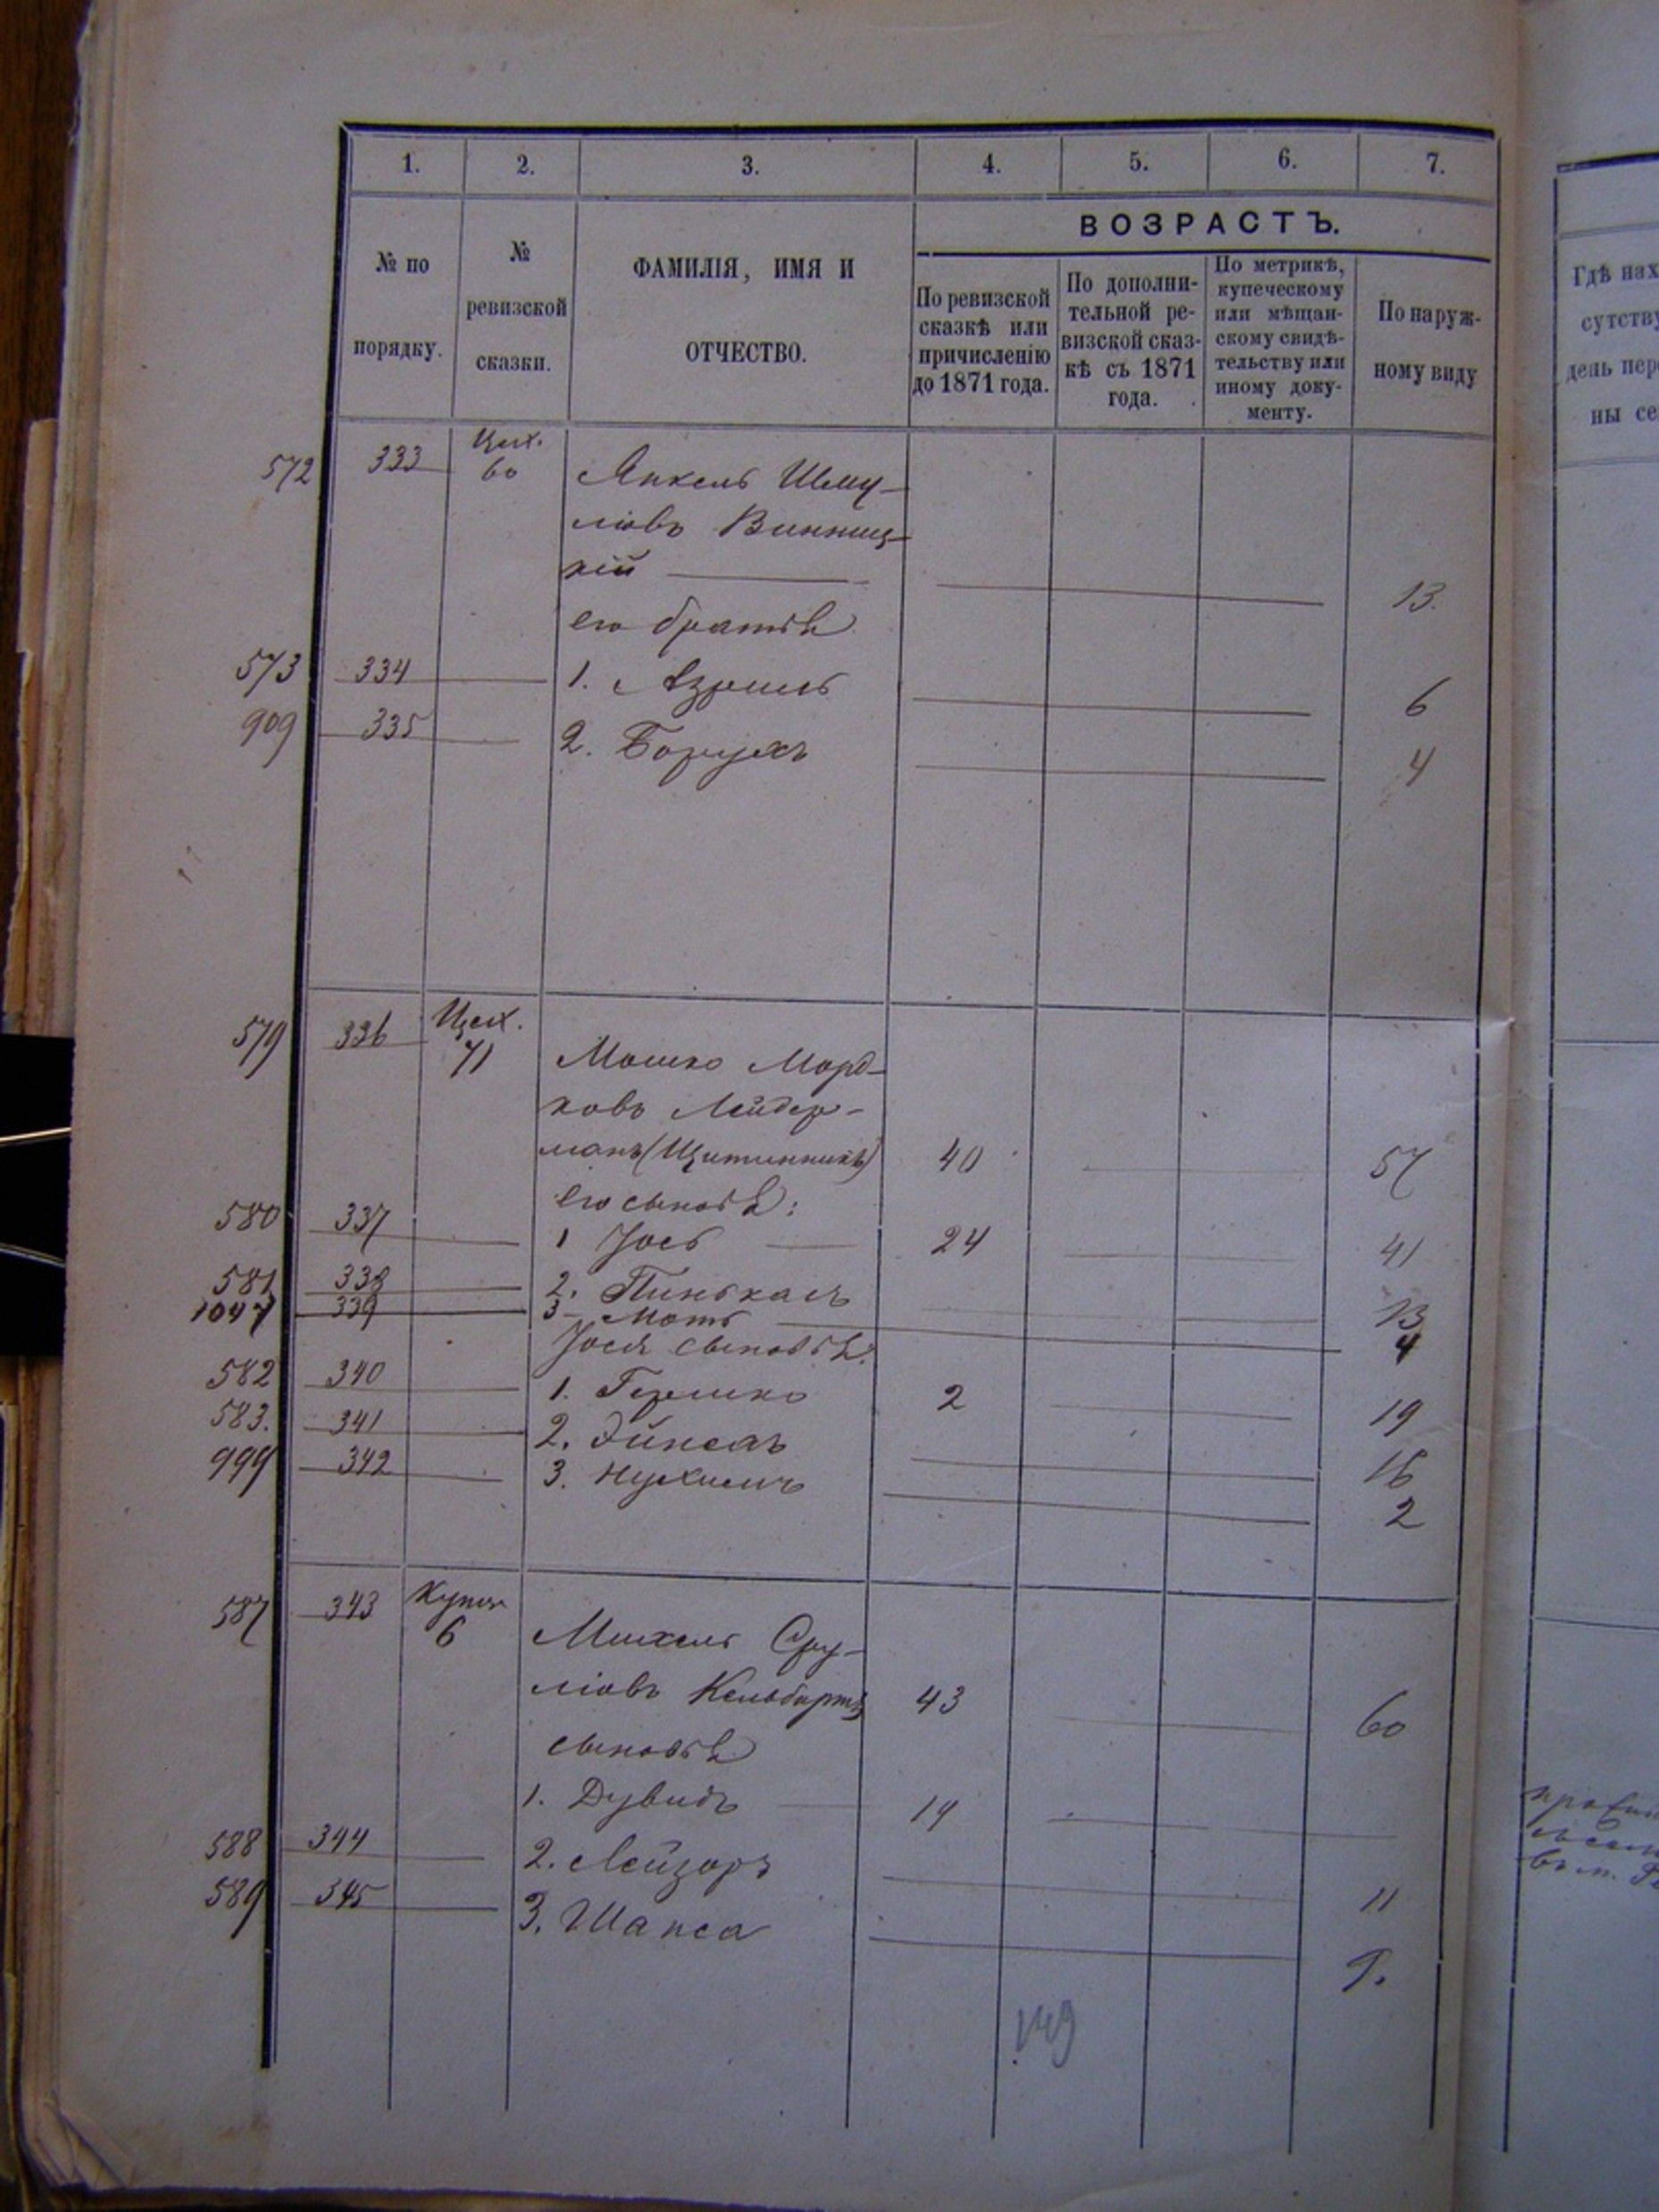 1. 2. 3. 4. 5. 6. 7.
№ по порядку.
№ ревизской сказки.
ФАМИЛІЯ, ИМЯ И
ОТЧЕСТВО.
ВОЗРАСТЪ.
По ревизской
сказкѣ или
причисленію
до 1871 года.
По дополни-
тельной ре-
визской сказ-
кѣ съ 1871
года.
По метрикѣ,
купеческому
или мѣщан-
скому свидѣ-
тельству или
иному доку-
менту.
По наруж-
ному виду
Гдѣ нах
сутству
день пер
ны се
572 333 Цех. 60 Янкель Шму-
ліовъ Винниц-
кій 13.
его братья
573 334 1. Азриль 6
909 335 2. Борухъ 4
579 336 Цех. 71 Мошко Морд-
ковъ Лейдер-
манъ (Щетинникъ) 40 57
его сыновья:
580 337 1 Іось 24 41
581 338 2. Пинькасъ 13
1047 339 3 Моть 4
Іося сыновья:
582 340 1. Гершко 2 19
583. 341 2. Эйнехъ 16
999 342 3. Нухимъ 2
587 343 Купец 6 Михель Сру-
ліовъ 43 60
сыновья
1. Дувидъ 14
588 344 2. Лейзоръ 11
589 345 3. Шапса 9.
149